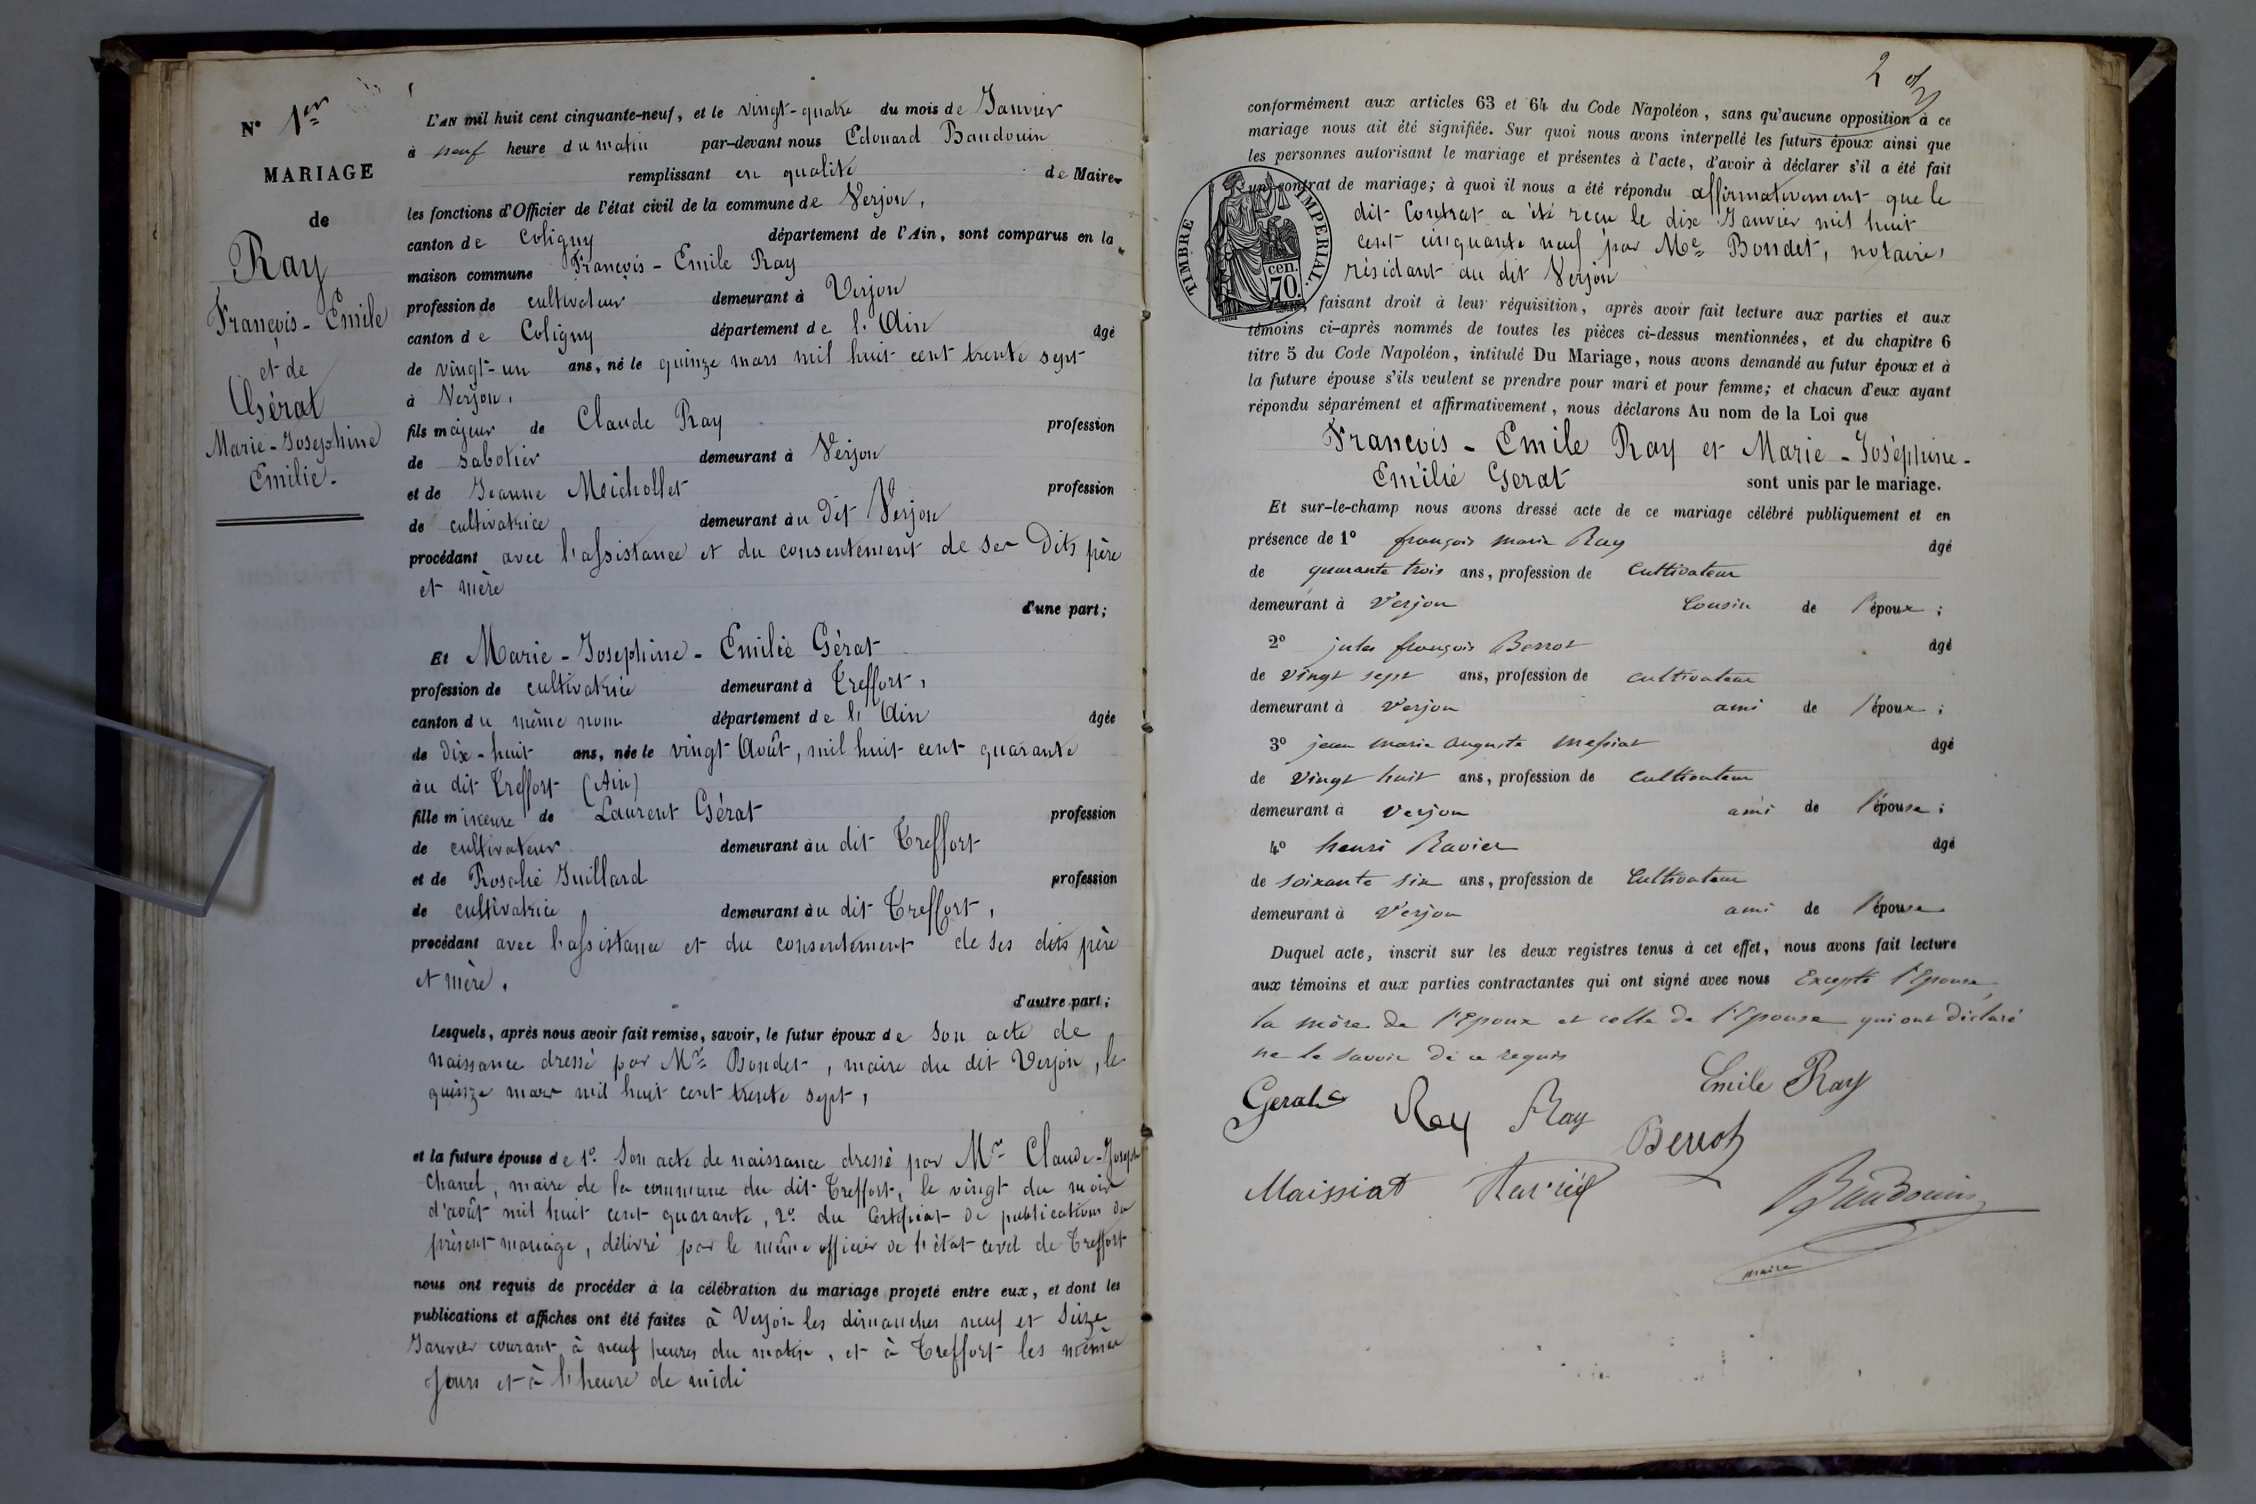 N° 1er
MARIAGE
de
Ray
François-Emile
et de
Gérat
Marie-Josephine
Emilie.
L'AN mil huit cent cinquante-neuf, et le vingt-quatre du mois de Janvier
à neuf heure du matin par-devant nous Edouard Baudouin
remplissant en qualité de Maire
les fonctions d'Officier de l'état civil de la commune de Verjon,
canton de Coligny département de l'Ain, sont comparus en la
maison commune François-Emile Ray
profession de cultivateur demeurant à Verjon
canton de Coligny département de l'Ain âgé
de vingt-un ans, né le quinze mars mil huit cent trente sept
à Verjon,
fils majeur de Claude Ray profession
de sabotier demeurant à Verjon
et de Jeanne Michollet profession
de cultivatrice demeurant au dit Verjon
procédant avec l'assistance et du consentement de ses dits père
et mère
d'une part;
Et Marie-Josephine-Emilie Gérat
profession de cultivatrice demeurant à Treffort,
canton du même nom département de l'Ain âgée
de dix-huit ans, née le vingt Août, mil huit cent quarante
au dit Treffort (Ain)
fille mineure de Laurent Gérat profession
de cultivateur demeurant au dit Treffort
et de Rosalie Guillard profession
de cultivatrice demeurant au dit Treffort,
procédant avec l'assistance et du consentement de ses dits père
et mère.
d'autre part;
Lesquels, après nous avoir fait remise, savoir, le futur époux de son acte de
naissance dressé par Mr Bondet, maire du dit Verjon, le
quinze mars mil huit cent trente sept,
et la future épouse de 1° Son acte de naissance dressé par Mr Claude-Joseph
Chanel, maire de la commune du dit Treffort, le vingt du mois
d'août mil huit cent quarante, 2° du Certificat de publications du
présent mariage, délivré par le même officier de l'état civil de Treffort
nous ont requis de procéder à la célébration du mariage projeté entre eux, et dont les
publications et affiches ont été faites à Verjon les dimanches neuf et Seize
Janvier courant à neuf heures du matin, et à Treffort les mêmes
jours et à l'heure de midi
2
conformément aux articles 63 et 64 du Code Napoléon, sans qu'aucune opposition à ce
mariage nous ait été signifiée. Sur quoi nous avons interpellé les futurs époux ainsi que
les personnes autorisant le mariage et présentes à l'acte, d'avoir à déclarer s'il a été fait
un contrat de mariage; à quoi il nous a été répondu affirmativement que le
dit Contrat a été reçu le dix Janvier mil huit
cent cinquante neuf par Me Bondet, notaire,
résidant au dit Verjon
TIMBRE IMPERIAL.
cen.
70.
faisant droit à leur réquisition, après avoir fait lecture aux parties et aux
témoins ci-après nommés de toutes les pièces ci-dessus mentionnées, et du chapitre 6
titre 5 du Code Napoléon, intitulé Du Mariage, nous avons demandé au futur époux et à
la future épouse s'ils veulent se prendre pour mari et pour femme; et chacun d'eux ayant
répondu séparément et affirmativement, nous déclarons Au nom de la Loi que
François-Emile Ray et Marie-Joséphine-
Emilie Gerat sont unis par le mariage.
Et sur-le-champ nous avons dressé acte de ce mariage célébré publiquement et en
présence de 1° françois marie Ray âgé
de quarante trois ans, profession de Cultivateur
demeurant à Verjon Cousin de l'époux;
2° jules françois Berrot âgé
de vingt sept ans, profession de cultivateur
demeurant à Verjon ami de l'époux;
3° jean marie auguste messiat âgé
de vingt huit ans, profession de Cultivateur
demeurant à Verjon ami de l'épouse;
4° henri Ravier âgé
de soixante six ans, profession de Cultivateur
demeurant à Verjon ami de l'épouse
Duquel acte, inscrit sur les deux registres tenus à cet effet, nous avons fait lecture
aux témoins et aux parties contractantes qui ont signé avec nous Excepté l'Epouse,
la mère de l'Epoux et celle de l'Epouse qui ont déclaré
ne le savoir de ce requis
Emile Ray
Gerat Ray Ray
Berrot
Maissiat
Baudouin
maire